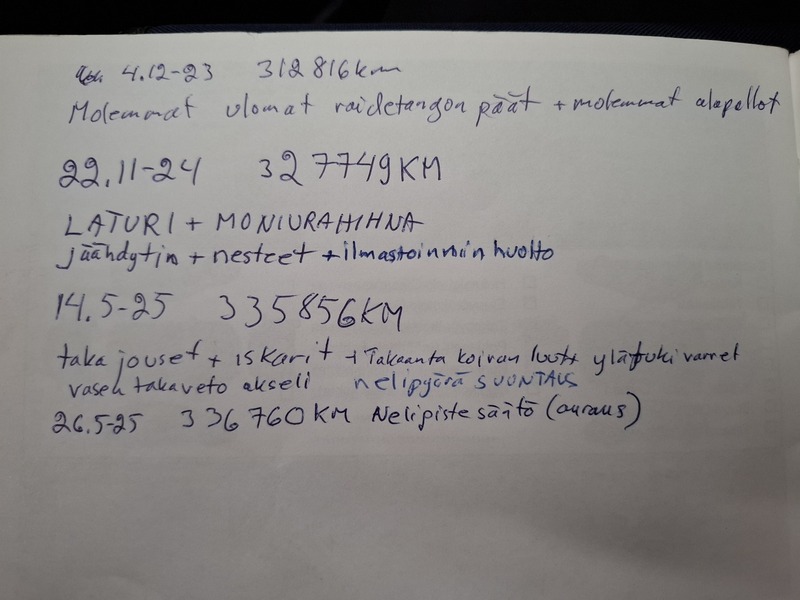 4.12-23 312816km
Molemmat ulomat raidetangon päät + molemmat alapallot
22.11-24 327749KM
LATURI + MONIURAHIHNA
jäähdytin + nesteet + ilmastoinnin huolto
14.5-25 335856KM
taka jouset + iskarit + Takaanta koiran luut ylätukivarret
vasen takaveto akseli nelipyörä SUUNTAUS
26.5-25 336760KM Nelipiste säätö (auraus)